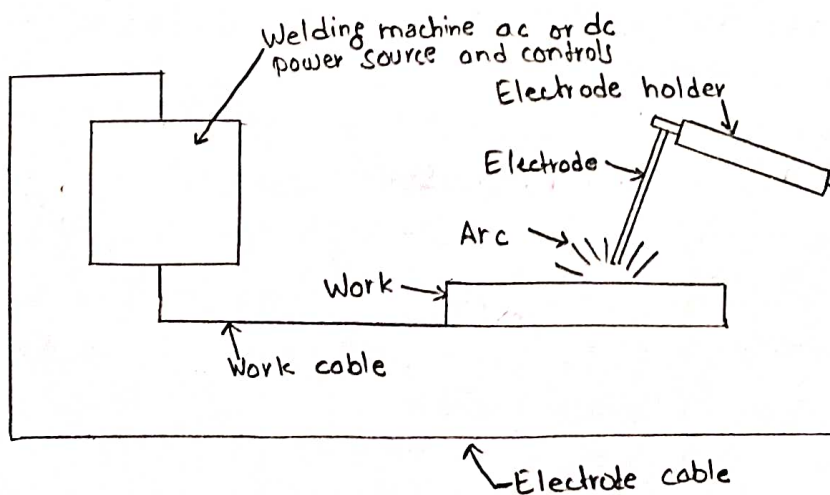 Welding machine ac or dc
power source and controls
Electrode holder
Electrode
Arc
Work
Work cable
Electrode cable